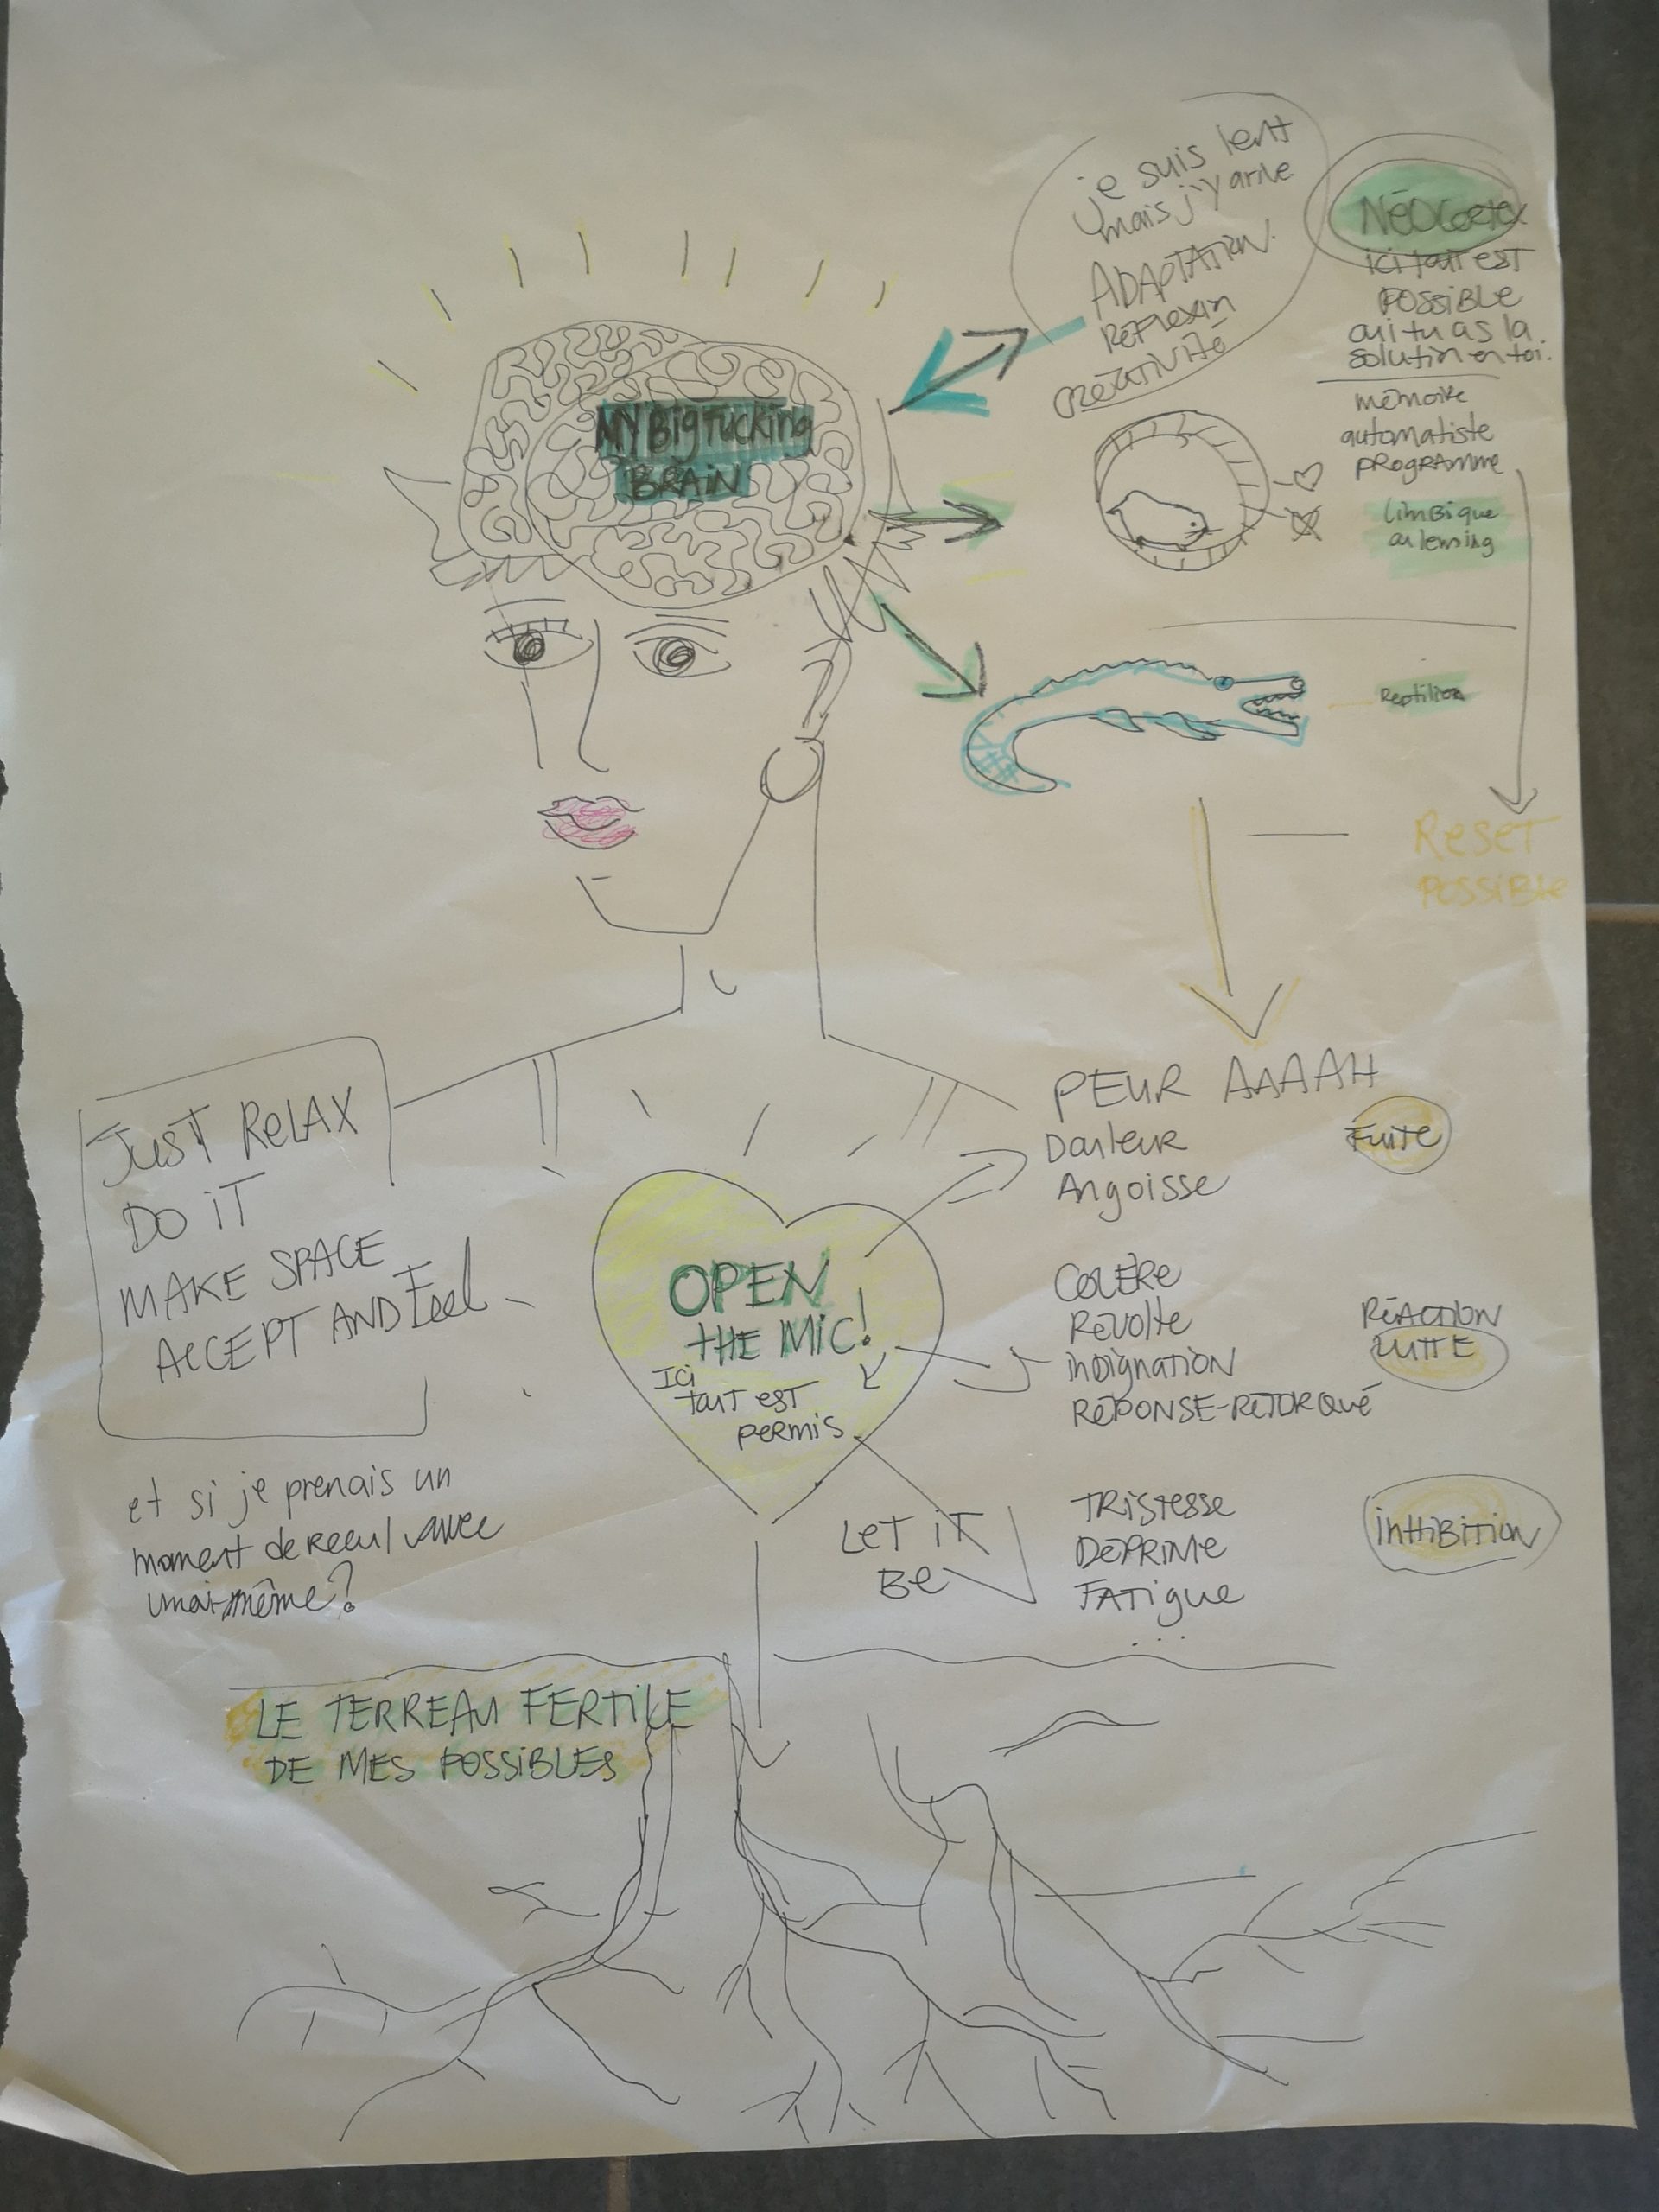 je suis lent
mais j'y arive
ADAPTATION.
Réflexion
CRÉATIVITÉ
NÉOCORTEX
ici tout est
POSSIBLE
oui tu as la
solution en toi.
mémoire
automatiste
PROGRAMME
limBique
ou lemsing
MY Big Fucking
BRAIN
Reptilien
Reset
POSSIBLE
PEUR AAAAH
Douleur
Angoisse
Fuite
JUST RELAX
DO iT
MAKE SPACE
ACCEPT AND Feel
OPEN
tHE MiC!
Ici
tout est
permis
COLÈRe
Révolte
inDignation
RÉPONSE-RETORQUÉ
RéACTION
LUTTE
et si je prenais un
moment de recul avec
moi-même?
LeT iT
Be
TRISTesse
DÉPRIMe
FATigue
...
iNHiBiTiON
LE TERREAU FERTILE
DE MES POSSiBLES